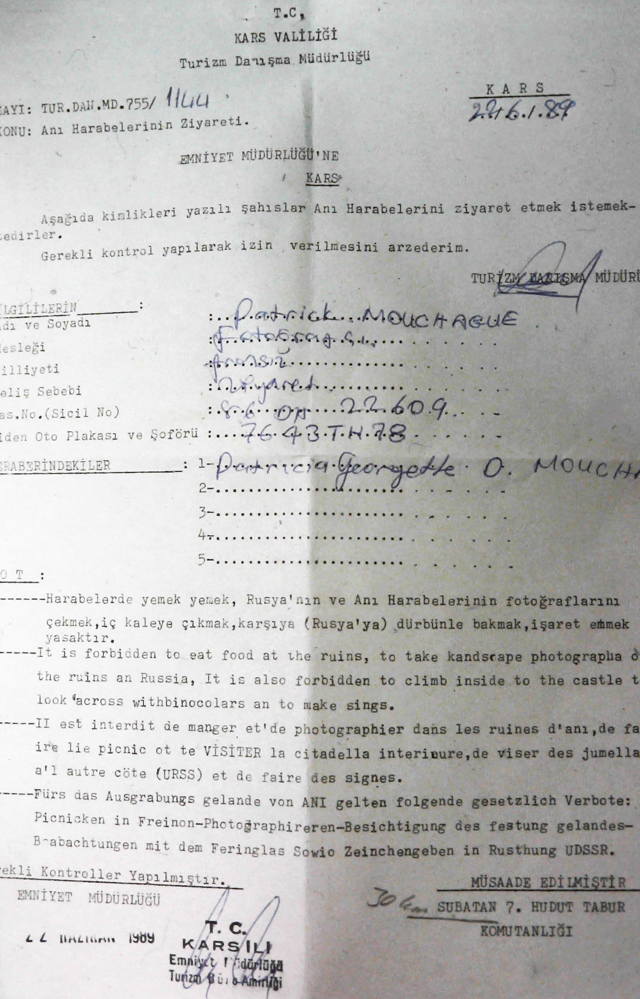 T.C,
KARS VALİLİĞİ
Turizm Danışma Müdürlüğü
AYI: TUR.DAN.MD.755/ 1144
KARS
ONU: Anı Harabelerinin Ziyareti.
22.6.1.89
EMNİYET MÜDÜRLÜĞÜ'NE
KARS
Aşağıda kimlikleri yazılı şahıslar Anı Harabelerini ziyaret etmek istemek-
tedirler.
Gerekli kontrol yapılarak izin verilmesini arzederim.
TURİZM DANIŞMA MÜDÜRÜ
İLGİLİLERİN :
dı ve Soyadı : Patrick MOUCHAGUE
esleği :
illiyeti :
eliş Sebebi : Ziyaret
as.No.(Sicil No) : 22609
iden Oto Plakası ve Şoförü : 7643.TH.78
ERABERİNDEKİLER : 1- Patricia Georgette O. MOUCHA
2-
3-
4-
5-
O T :
------Harabelerde yemek yemek, Rusya'nın ve Anı Harabelerinin fotoğraflarını
çekmek,iç kaleye çıkmak,karşıya (Rusya'ya) dürbünle bakmak,işaret emmek
yasaktır.
-----It is forbidden to eat food at the ruins, to take kandscape photographa o
the ruins an Russia, It is also forbidden to climb inside to the castle t
look across withbinocolars an to make sings.
-----II est interdit de manger et'de photographier dans les ruines d'ani,de fa
ire lie picnic ot te VİSİTER la citadella interinure,de viser des jumella
a'l autre cöte (URSS) et de faire des signes.
----Fürs das Ausgrabungs gelande von ANI gelten folgende gesetzlich Verbote:
Picnicken in Freinon-Photographireren-Besichtigung des festung gelandes-
Brabachtungen mit dem Feringlas Sowio Zeinchengeben in Rusthung UDSSR.
erekli Kontroller Yapılmıştır.
MÜSAADE EDİLMİŞTİR
EMNİYET MÜDÜRLÜĞÜ
30 km SUBATAN 7. HUDUT TABUR
KOMUTANLIĞI
22 HAZİRAN 1989
T. C.
KARS İLİ
Emniyet Müdürlüğü
Turizm Büro Amirliği